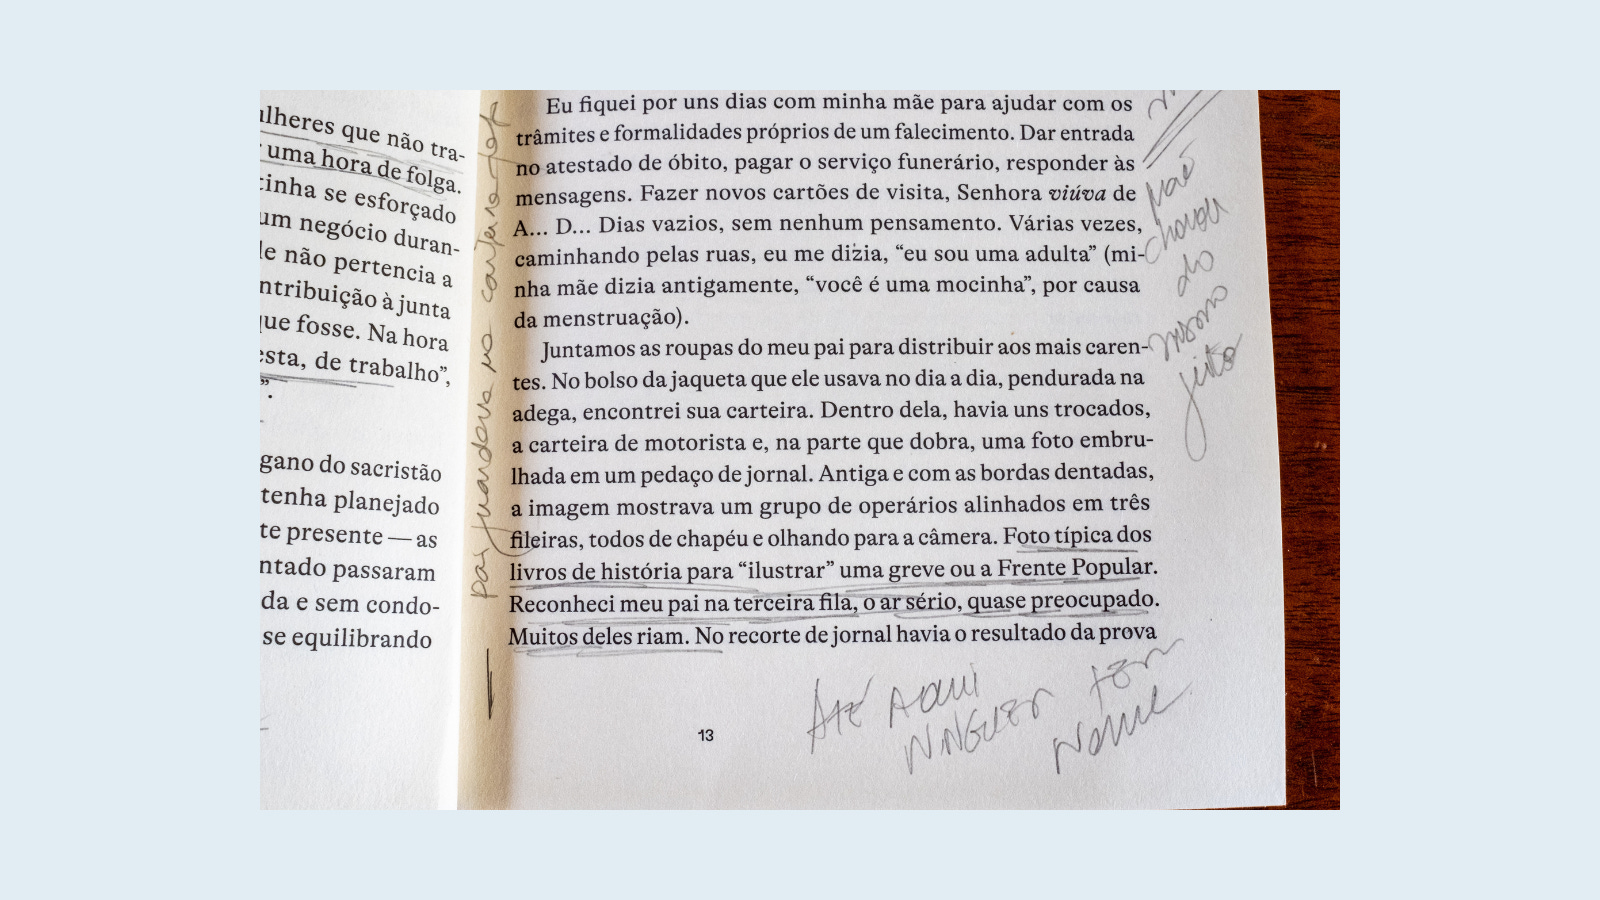 ulheres que não tra-
uma hora de folga.
tinha se esforçado
um negócio duran-
le não pertencia a
ntribuição à junta
que fosse. Na hora
esta, de trabalho”,
”.
gano do sacristão
tenha planejado
te presente — as
ntado passaram
da e sem condo-
se equilibrando
pai guardava na carteira foto
Eu fiquei por uns dias com minha mãe para ajudar com os
trâmites e formalidades próprios de um falecimento. Dar entrada
no atestado de óbito, pagar o serviço funerário, responder às
mensagens. Fazer novos cartões de visita, Senhora viúva de
A... D... Dias vazios, sem nenhum pensamento. Várias vezes,
caminhando pelas ruas, eu me dizia, “eu sou uma adulta” (mi-
nha mãe dizia antigamente, “você é uma mocinha”, por causa
da menstruação).
Juntamos as roupas do meu pai para distribuir aos mais caren-
tes. No bolso da jaqueta que ele usava no dia a dia, pendurada na
adega, encontrei sua carteira. Dentro dela, havia uns trocados,
a carteira de motorista e, na parte que dobra, uma foto embru-
lhada em um pedaço de jornal. Antiga e com as bordas dentadas,
a imagem mostrava um grupo de operários alinhados em três
fileiras, todos de chapéu e olhando para a câmera. Foto típica dos
livros de história para “ilustrar” uma greve ou a Frente Popular.
Reconheci meu pai na terceira fila, o ar sério, quase preocupado.
Muitos deles riam. No recorte de jornal havia o resultado da prova
mãe
do
mesmo
jeito
ATÉ AQUI
NINGUÉM TEM
NOME
13